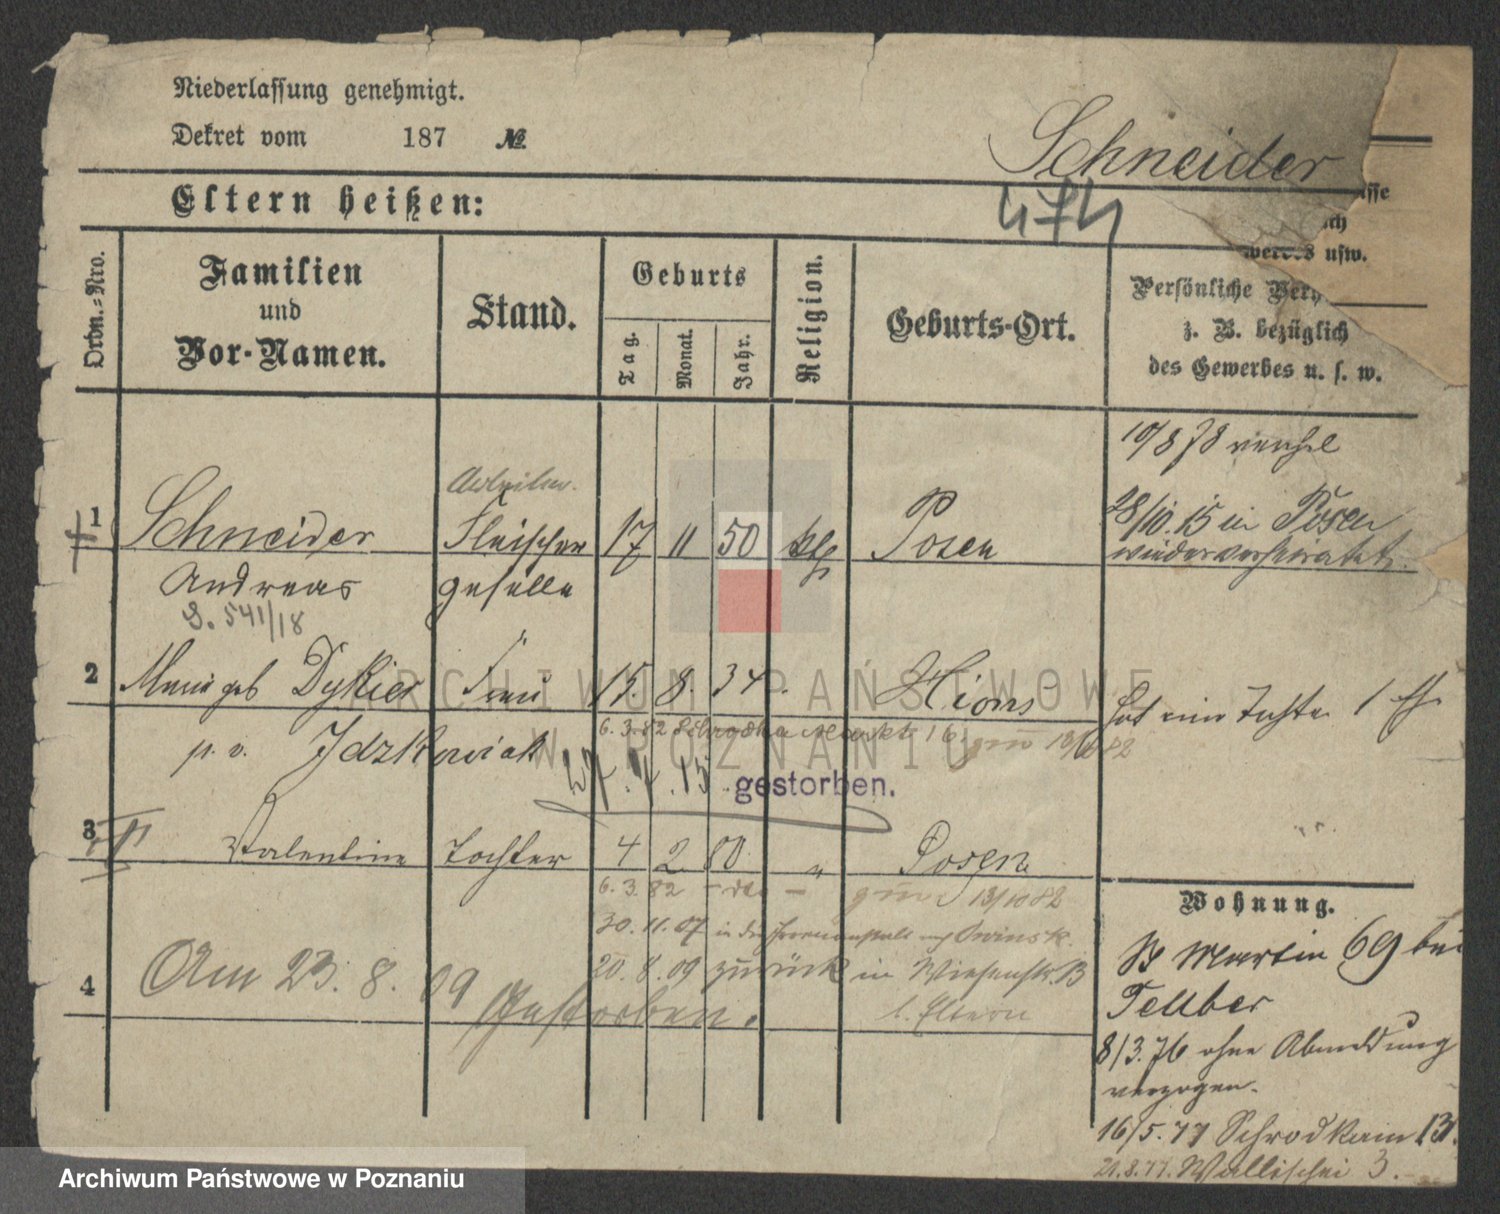 Niederlassung genehmigt.
Dekret vom 187 №.
Schneider
Eltern heißen:
474
werbes usw.
Ordn.-Nro.
Familien
und
Vor-Namen.
Stand.
Geburts
Tag.
Monat.
Jahr.
Religion.
Geburts-Ort.
Persönliche
z. B. bezüglich
des Gewerbes u. s. w.
10/8 78
1 Schneider Fleischer 17 11 50 kth Posen
28/10.15 in Posen
wiederverheiratet.
Andreas geselle
S. 541/18
2 Marie geb Dykier Frau 15. 8. 34. Xions
hat eine Tochter
p. v. Idzkowiak
6. 3. 82 Schrodka Markt 16
27. 4. 15 gestorben.
3 Valentine Tochter 4 2 80 " Posen
6. 3. 82 - dto -
13/10 82
30. 11. 07 in der Irrenanstalt Owinsk.
20. 8. 09 zurück in Wiesenstr. 13
b. Eltern
4 Am 23. 8. 09 Gestorben.
Wohnung.
St Martin 69 bei
Tellber
8/3. 76 ohne Abmeldung
verzogen.
16/5. 77 Schrodka 13.
21.8.77. Wallischei 3.
ARCHIWUM PAŃSTWOWE
W POZNANIU
Archiwum Państwowe w Poznaniu